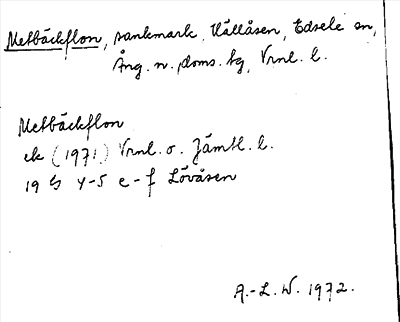 Metbäckflon, sankmark, Källåsen, Edsele sn,
Ång. n. doms. sg, Vrnl. l.
Metbäckflon
ek (1971) Vrnl. o. Jämtl. l.
19 G 4-5 e-f Lövåsen
A.-L. W. 1972.